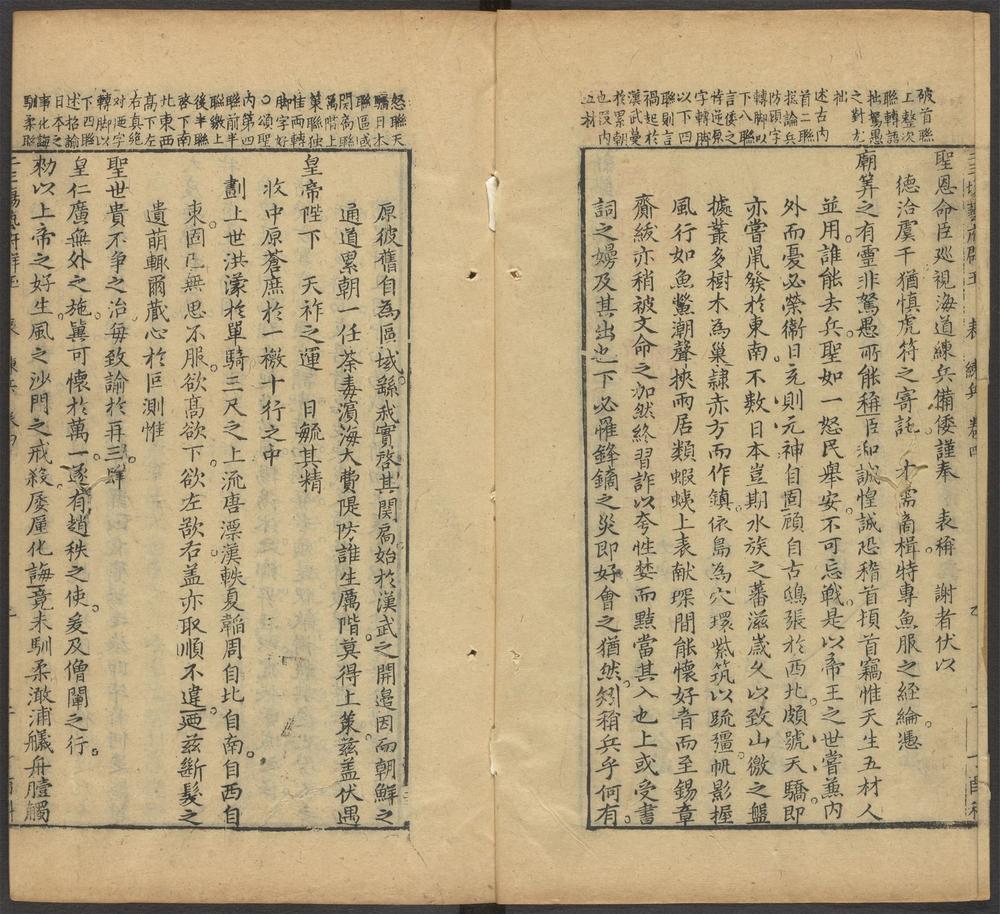 破首聯
上整次
聯轉語
拙駑愚
之對尤
拙
述古內
首二聯
捴論兵
防頭字
轉脚以
下八聯
言倭之
特逆原
字轉脚
以下四
聯則言
禍起於
漢武蔓
於累朝
也段内
五材
聖恩命臣廵視海道練兵備倭謹奉 表稱 謝者伏以
德洽虞干猶慎虎符之寄託才需商楫特專魚服之經綸憑
廟筭之有靈非駑愚所能稱臣 誠惶誠恐稽首頓首竊惟天生五材人
並用誰能去兵聖如一怒民舉安不可忘戰是以帝王之世嘗蒹内
外而憂必榮衞日充則元神自固顧自古鴟張於西北頗號天驕即
亦嘗鼡發於東南不數日本豈期水族之蕃滋歲久以致山徼之盤
據叢多樹木為巢隷赤方而作鎮依島為穴環紫筑以䟽彊帆影握
風行如魚鱉潮聲挾雨居類蝦蛦上表献琛間能懷好音而至錫章
齎紱亦稍被文命之 然終習詐以夸性婪而黠當其入也上或受書
詞之嫚及其出也下必罹鋒鏑之災即好會之猶然矧稱兵乎何有
怒聯天
驕日木
聯區或
関高聯
厲階上
策聯独
惟両轉
脚字好
○頌聖
内第四
聯前半
聯繳上
後半聯
啓下南
北東西
髙下左
右真絕
对迺字
轉脚以
下四聯
述招諭
日本之
事化誨
馴柔聯
原彼舊自為區域繇戒實啓其関扃始於漢武之開邉因而朝鮮之
通道累朝一任荼毒濵海大費隄防誰生厲階莫得上策茲盖伏遇
皇帝陛下 天祚之運 日毓其精
收中原蒼庶於一檄十行之中
劃上世洪濛於單騎三尺之上流唐漂漢軼夏韜周自北自南自西自
東固已無思不服欲髙欲下欲左欲右盖亦取順不違迺茲斷髮之
遺萌輙爾蔵心於叵測惟
聖世貴不爭之治每致諭於再三肆
皇仁廣無外之施冀可懷於萬一遂有趙秩之使爰及僧闡之行
勑以上帝之好生風之沙門之戒殺屡屡化誨竟未馴柔澉浦艤舟膻觸